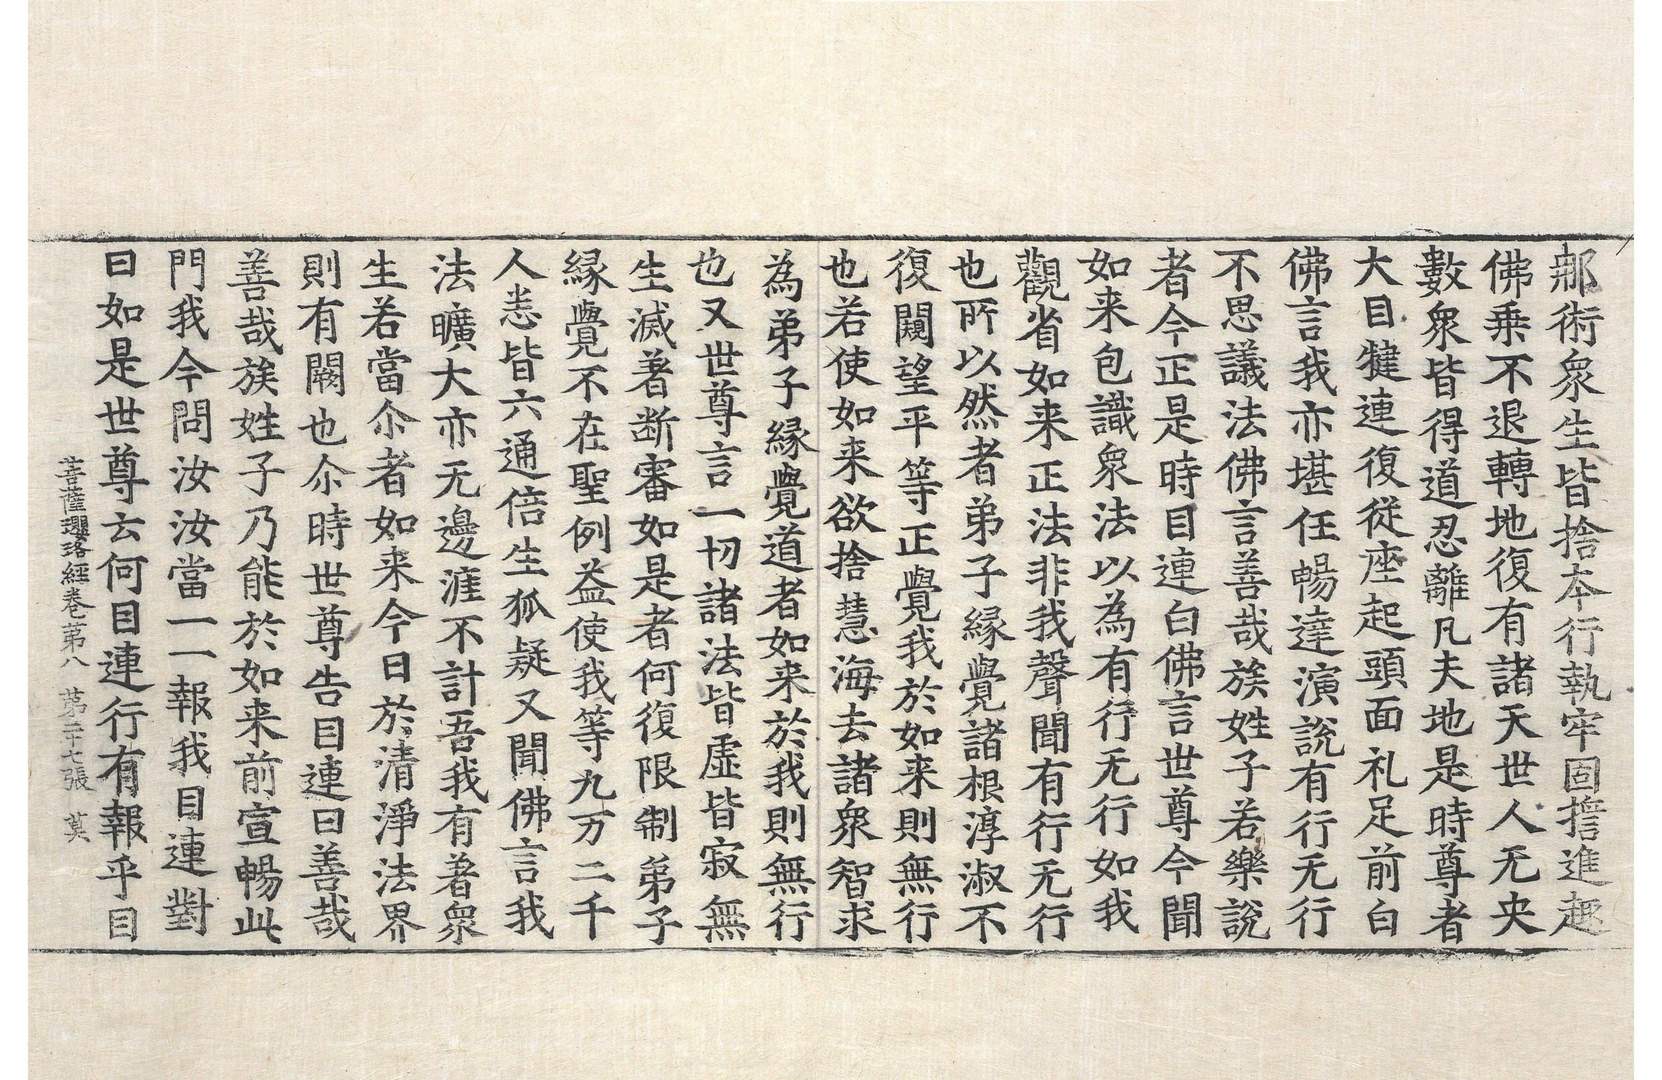 那術衆生皆捨本行執牢固擔進趣
佛乗不退轉地復有諸天世人无央
數衆皆得道忍離凡夫地是時尊者
大目揵連復從座起頭面礼足前白
佛言我亦堪任暢達演說有行无行
不思議法佛言善哉族姓子若樂說
者今正是時目連白佛言世尊今聞
如来包識衆法以為有行无行如我
觀省如来正法非我聲聞有行无行
也所以然者弟子緣覺諸根淳淑不
復闚望平等正覺我於如来則無行
也若使如来欲捨慧海去諸衆智求
為弟子緣覺道者如来於我則無行
也又世尊言一切諸法皆虛皆寂無
生滅著断審如是者何復限制弟子
緣覺不在聖例益使我等九万二千
人恙皆六通倍生狐疑又聞佛言我
法曠大亦无邊涯不計吾我有著衆
生若當尒者如来今日於清淨法界
則有闕也尒時世尊告目連曰善哉
善哉族姓子乃能於如来前宣暢此
門我今問汝汝當一一報我目連對
曰如是世尊云何目連行有報乎目
菩薩瓔珞經卷第八 第二十七張 莫